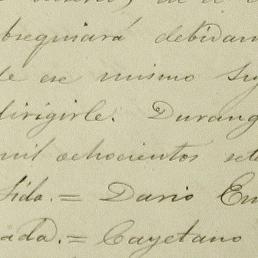 bsequiará debidam
de ese mismo Sig
dirigirle. Durang
mil ochocientos sete
sida.= Dario Em
ada.= Cayetano